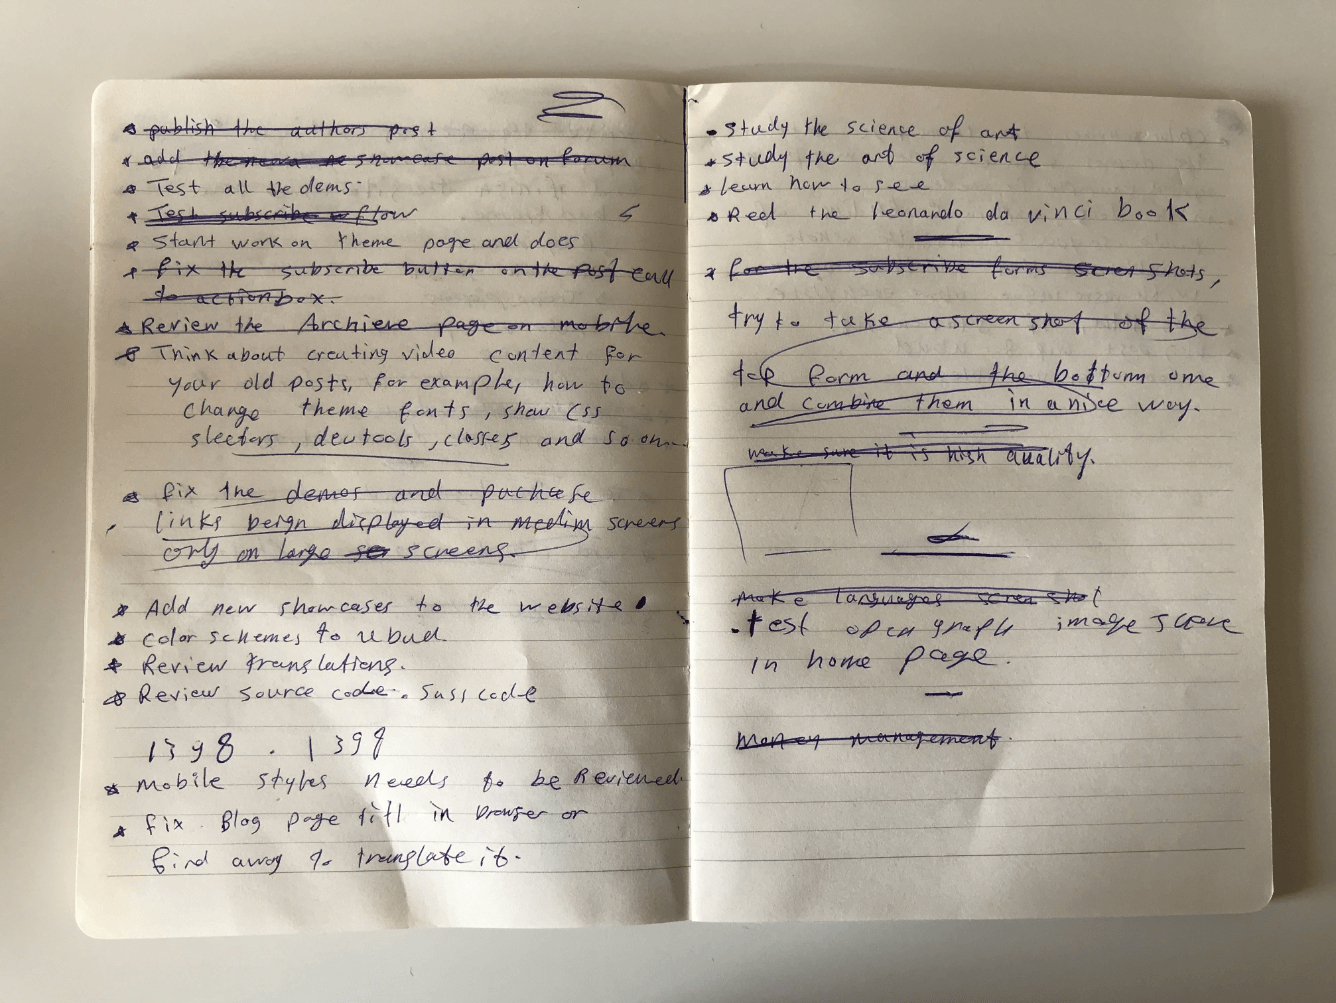 publish the authors post
add the showcase post on forum
Test all the dems.
Test subscribe flow
Start work on theme page and does
fix the subscribe button on the post call
to action box.
Review the Archieve page on mobile.
Think about creating video content for
your old posts, for example, how to
change theme fonts, show css
slectors, devtools, classes and so on
fix the demos and puchase
links beign displayed in medim screens
only on large screens.
Add new showcases to the website
color schemes to
Review translations.
Review source code. Sass code
1398 . 1399
Mobile styles needs to be Reviewed.
fix Blog page titl in browser or
find away to translate it.
study the science of art
study the art of science
learn how to see
Reed the leonardo da vinci book
for the subscribe forms screen shots,
try to take a screen shot of the
top form and the bottom one
and combine them in a nice way.
make sure it is high quality.
Make languages screen shot
test open graph image
in home page.
Money management.